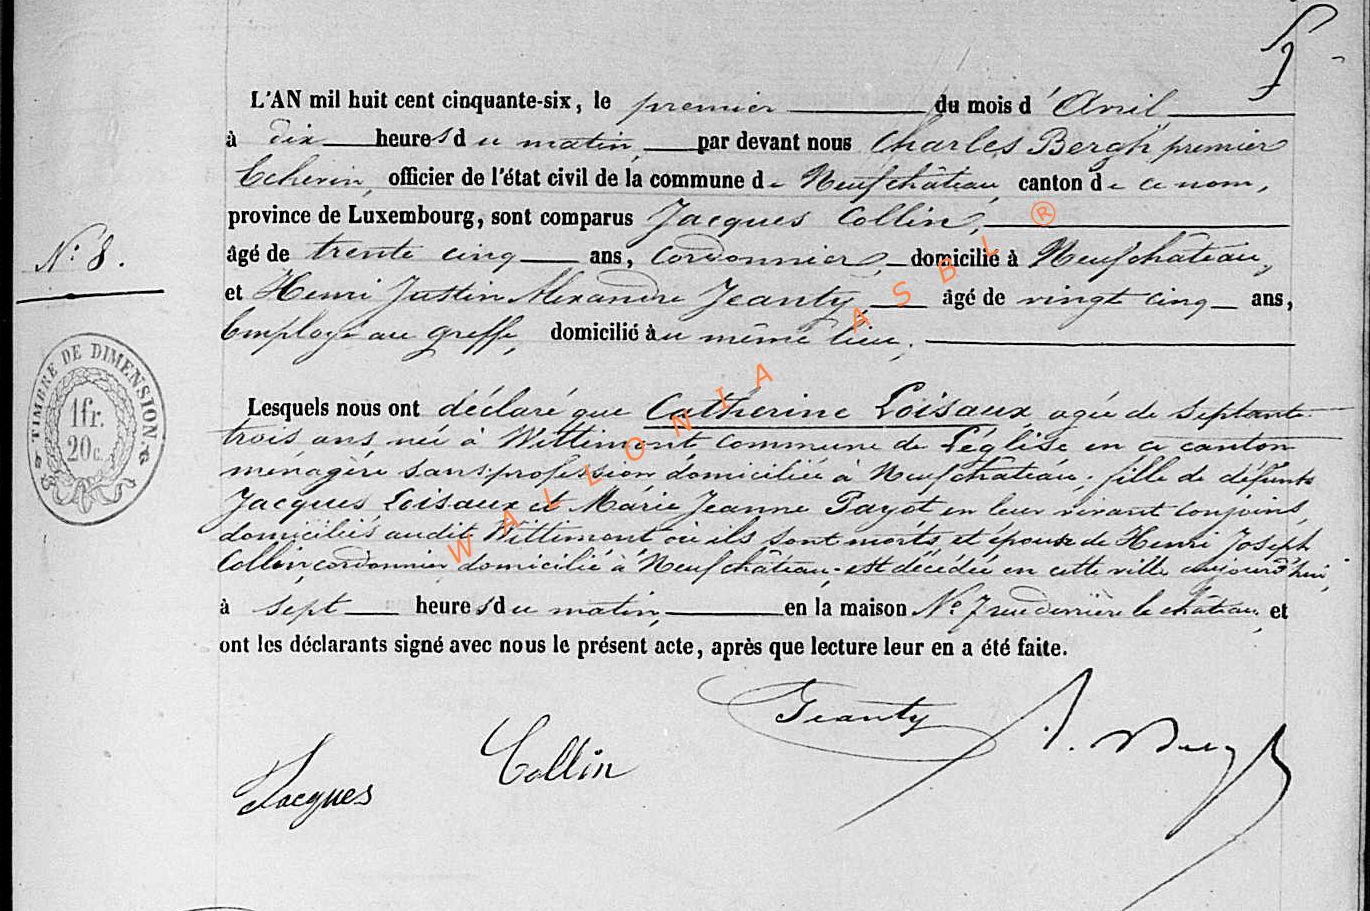 L'AN mil huit cent cinquante-six, le premier du mois d'Avril
à dix heures du matin, par devant nous Charles Bergh premier
Echevin, officier de l'état civil de la commune de Neufchâteau, canton de ce nom,
province de Luxembourg, sont comparus Jacques Collin,
N° 8.
âgé de trente cinq ans, Cordonnier, domicilié à Neufchâteau,
et Henri Justin Alexandre Jeanty, âgé de vingt cinq ans,
Employé au greffe, domicilié au même lieu,
TIMBRE DE DIMENSION.
1fr.
20c.
Lesquels nous ont déclaré que Catherine Loisaux, agée de Septante
trois ans née à Wittimont commune de Léglise en ce canton
ménagère sans profession domiciliée à Neufchâteau, fille de défunts
Jacques Loisaux et Marie Jeanne Payot en leur vivant conjoins,
domiciliés audit Wittimont où ils sont morts et épouse de Henri Joseph
Collin, cordonnier domicilié à Neufchâteau, est décédée en cette ville aujourd'hui,
à sept heures du matin, en la maison N° 7 rue derrière le château, et
ont les déclarants signé avec nous le présent acte, après que lecture leur en a été faite.
Jeanty
Jacques Collin
WALLONIA ASBL ®